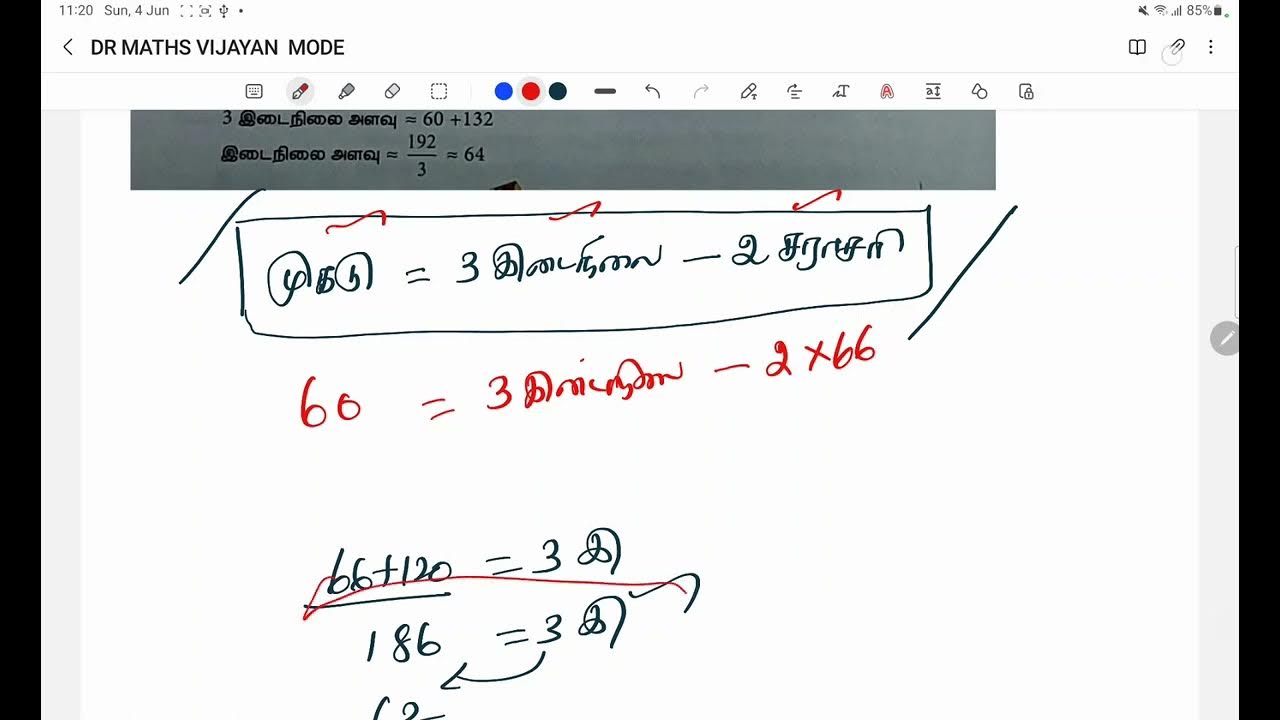 11:20 Sun, 4 Jun 85%
DR MATHS VIJAYAN MODE
3 இடைநிலை அளவு ≈ 60 +132
இடைநிலை அளவு ≈ 192/3 ≈ 64
முகடு = 3 இடைநிலை - 2 சராசரி
60 = 3 இடைநிலை - 2 × 66
66+120 = 3 இ
186 = 3 இ